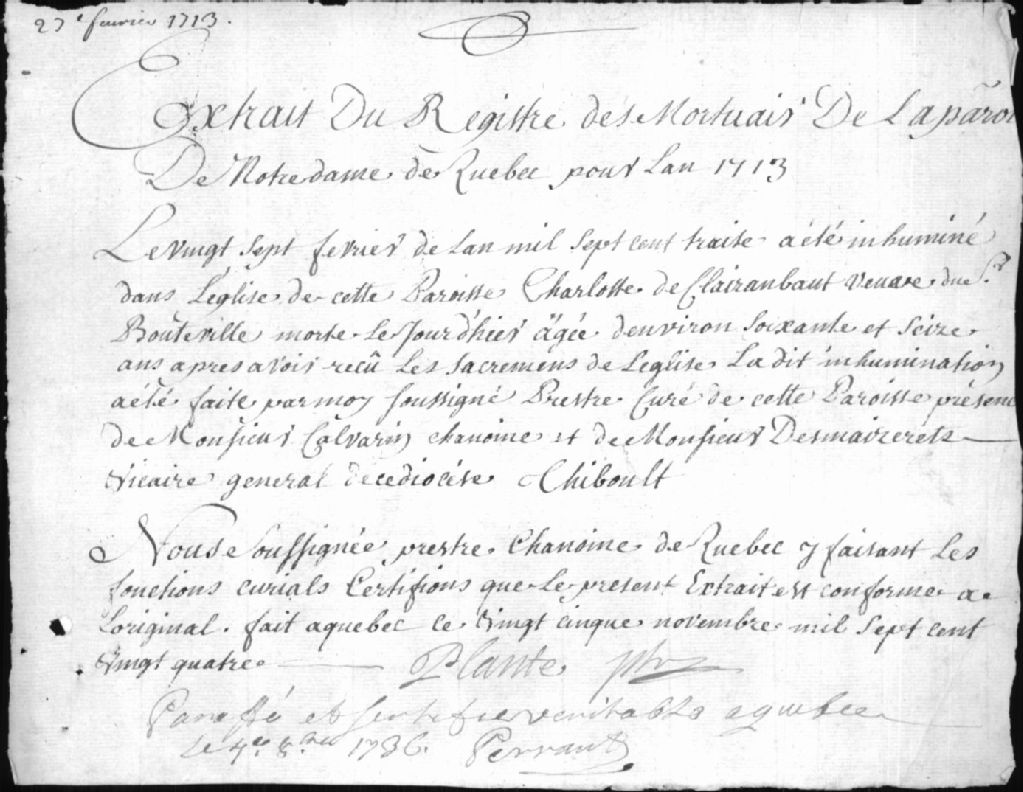 27e fevrier 1713.
Extrait Du Registre des Mortuais De La paroi
De Notre dame de Quebec pour Lan 1713
Le vingt sept fevrier de Lan mil sept cent traite a été inhuminé
dans L'eglise de cette Paroisse Charlotte de Clairanbaut veuave due Sr
Bouteville morte Le Jourdhier âgée denviron soixante et seize
ans apres avoir recû Les sacremens de Leglise La dit inhumination
a été faite par moy soussigné Prestre Curé de cette Paroisse présenc
de Monsieur Calvarin chanoine et de Monsieur Desmaizerets
vicaire general de cediocése Thiboult
Nous Soussignée prestre Chanoine de Quebec y faisant Les
fonctions curials Certifions que Le present Extrait est conforme a
Loriginal. fait aquebec ce vingt cinque novembre mil sept cent
vingt quatre Plante ptre
Paraffé et sertifie veritable aquebec
le 4e 8bre 1736.